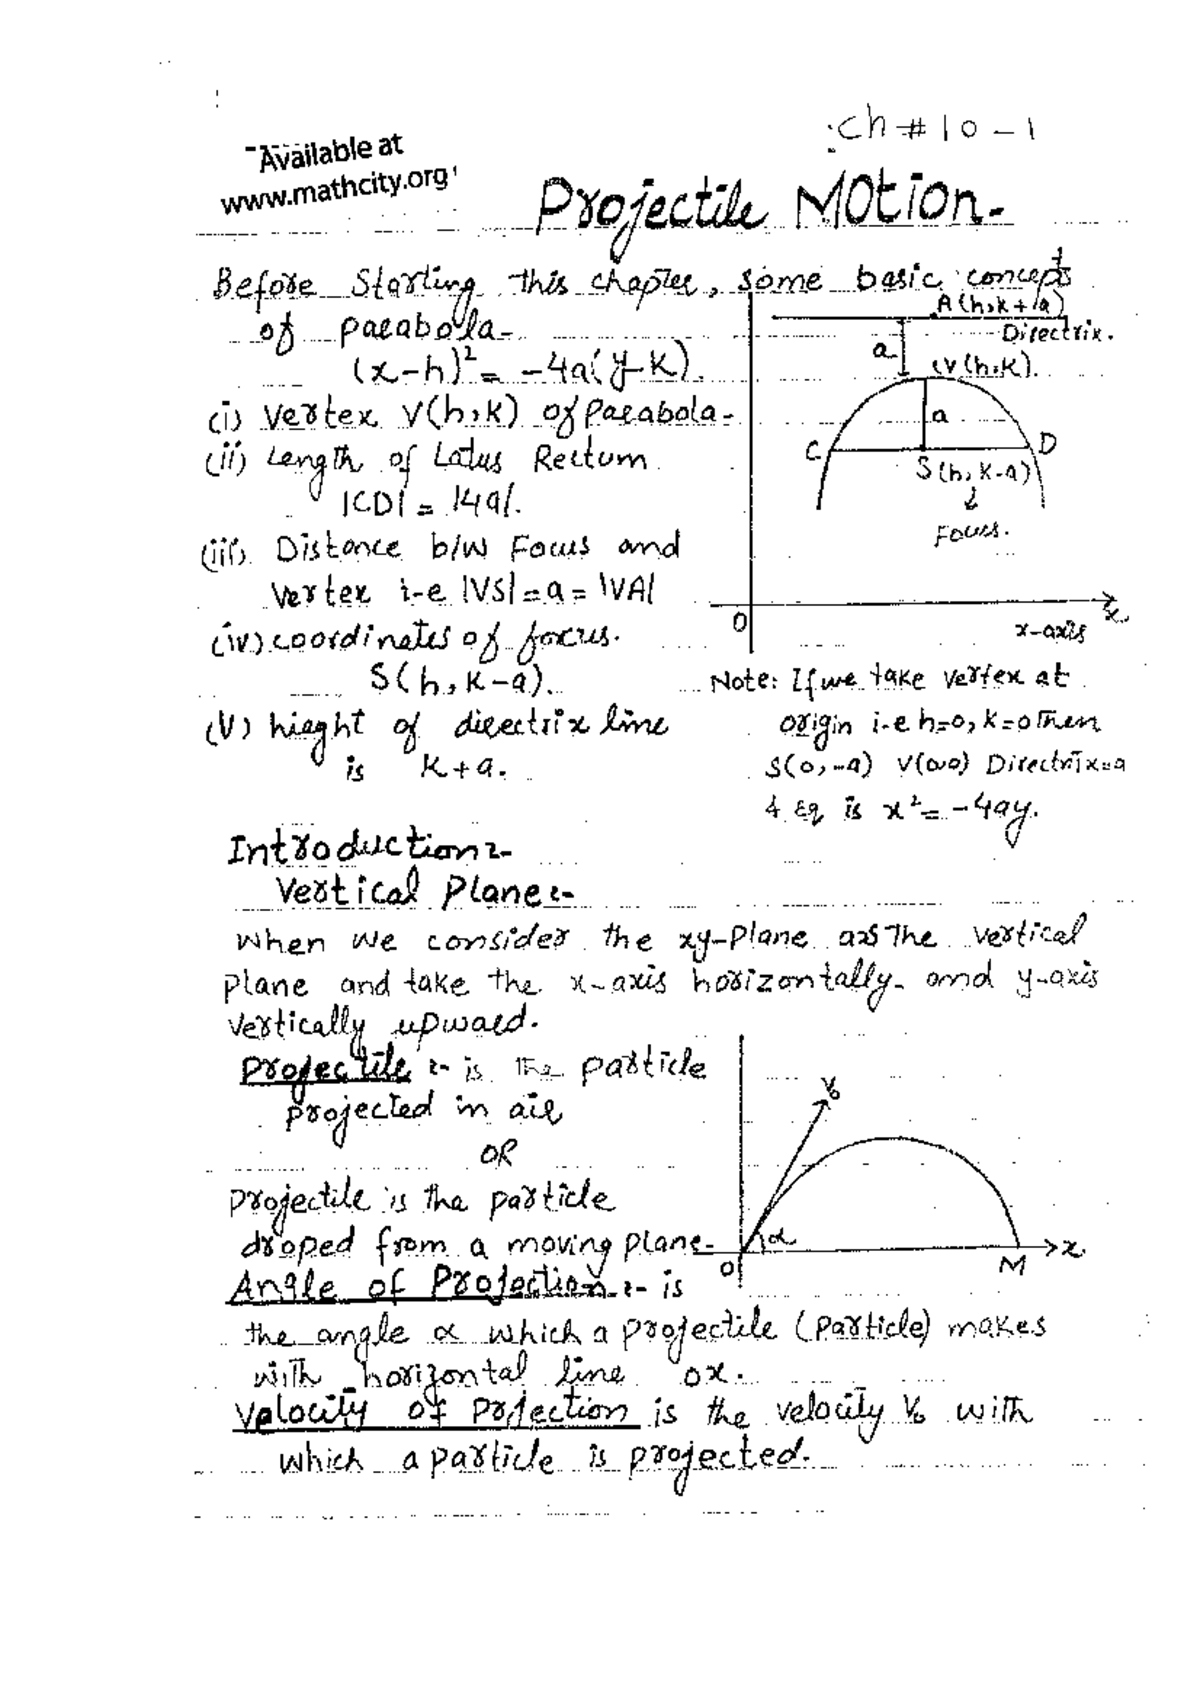 Ch # 10 - 1
Available at
www.mathcity.org
Projectile Motion.
Before Starting this chapter, some basic concepts
of parabola.
(x-h)² = -4a(y-k).
(i) Vertex V(h,k) of Parabola.
(ii) Length of Latus Rectum
|CD| = |4a|.
(iii). Distance b/w Focus and
Vertex i-e |VS| = a = |VA|
(iv) coordinates of focus.
S(h, k-a).
(V) hieght of directrix line
is k+a.
A(h,k+a)
Directrix.
a
V(h,k).
a
C
D
S(h, k-a)
↓
Focus.
O
x
x-axis
Note: If we take vertex at
origin i-e h=0, k=0 Then
S(0,-a) V(0,0) Directrix=a
& Eq is x² = -4ay.
Introduction:-
Vertical Plane:-
When we consider the xy-Plane as The vertical
Plane and take the x-axis horizontally and y-axis
vertically upward.
Projectile :- is the particle
projected in air
OR
Projectile is the particle
droped from a moving plane.
V₀
α
O
M
x
Angle of Projection :- is
the angle α which a projectile (Particle) makes
with horizontal line ox.
Velocity of Projection is the velocity V₀ with
which a particle is projected.